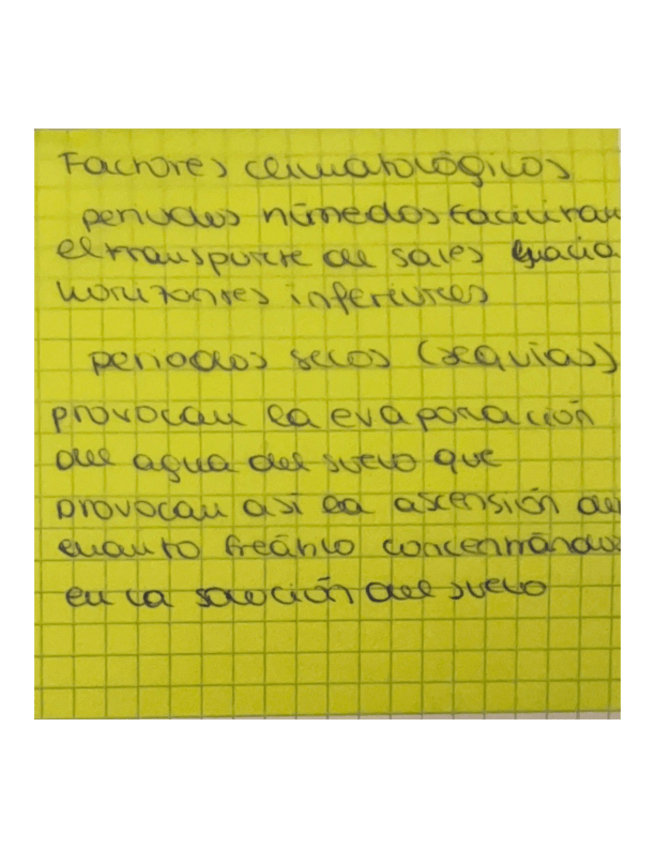 Factores climatológicos
periodos húmedos facilitan
el transporte de sales hacia
horizontes inferiores
periodos secos (sequias)
provocan la evaporación
del agua del suelo que
provocan asi la ascensión del
manto freático concentrándos
en la solución del suelo